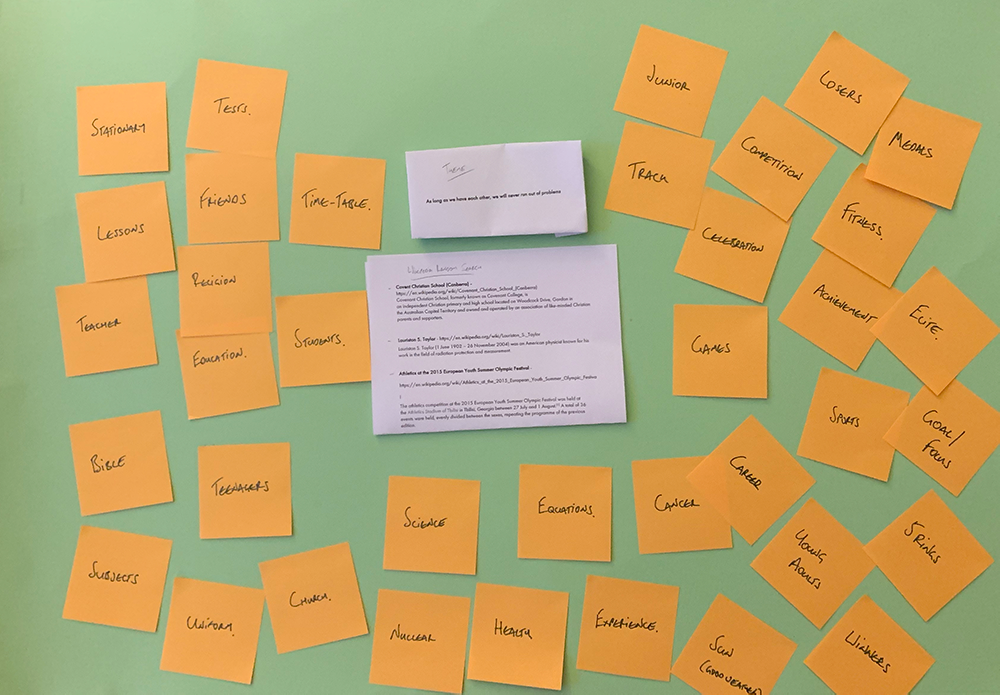 STATIONARY
TESTS.
LESSONS
FRIENDS
TIME-TABLE.
TEACHER
RELIGION
EDUCATION.
STUDENTS.
BIBLE
TEENAGERS
SUBJECTS
UNIFORM.
CHURCH.
THEME
As long as we have each other, we will never run out of problems
WIKIPEDIA RANDOM SEARCH
- Covent Christian School (Canberra) -
https://en.wikipedia.org/wiki/Covenant_Christian_School_(Canberra)
Covenant Christian School, formerly known as Covenant College, is
an independent Christian primary and high school located on Woodcock Drive, Gordon in
the Australian Capital Territory and owned and operated by an association of like-minded Christian
parents and supporters.
- Lauriston S. Taylor - https://en.wikipedia.org/wiki/Lauriston_S._Taylor
Lauriston S. Taylor (1 June 1902 – 26 November 2004) was an American physicist known for his
work in the field of radiation protection and measurement
- Athletics at the 2015 European Youth Summer Olympic Festival -
https://en.wikipedia.org/wiki/Athletics_at_the_2015_European_Youth_Summer_Olympic_Festival
The athletics competition at the 2015 European Youth Summer Olympic Festival was held at
the Athletics Stadium of Tbilisi in Tbilisi, Georgia between 27 July and 1 August. A total of 36
events were held, evenly divided between the sexes, repeating the programme of the previous
edition.
JUNIOR
LOSERS
MEDALS
TRACK
COMPETITION
FITNESS.
CELEBRATION
ACHIEVEMENT
ELITE.
GAMES
SPORTS
GOAL/
FOCUS
SCIENCE
EQUATIONS.
CANCER
CAREER
YOUNG
ADULTS
5 RINGS
NUCLEAR
HEALTH
EXPERIENCE.
SUN
(GOOD WEATHER)
WINNERS